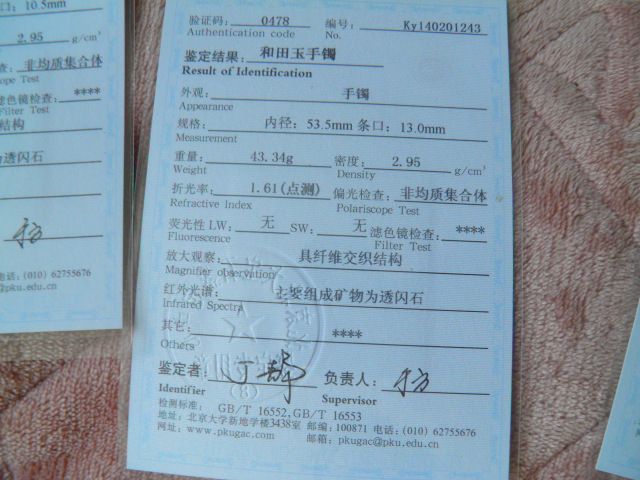 验证码: 0478 编号: Ky140201243
Authentication code No.
鉴定结果: 和田玉手镯
Result of Identification
外观: 手镯
Appearance
规格: 内径: 53.5mm 条口: 13.0mm
Measurement
重量: 43.34g 密度: 2.95 g/cm³
Weight Density
折光率: 1.61(点测) 偏光检查: 非均质集合体
Refractive Index Polariscope Test
荧光性 LW: 无 SW: 无 滤色镜检查: ****
Fluorescence Filter Test
放大观察: 具纤维交织结构
Magnifier observation
红外光谱: 主要组成矿物为透闪石
Infrared Spectra
其它: ****
Others
鉴定者: 负责人:
Identifier Supervisor
检测标准: GB/T 16552,GB/T 16553
地址: 北京大学新地学楼3438室 邮编: 100871 电话: (010) 62755676
网址: www.pkugac.com 邮箱: pkugac@pku.edu.cn
口: 10.5mm
2.95 g/cm³
查: 非均质集合体
scope Test
滤色镜检查: ****
Filter Test
结构
为透闪石
电话: (010) 62755676
@pku.edu.cn